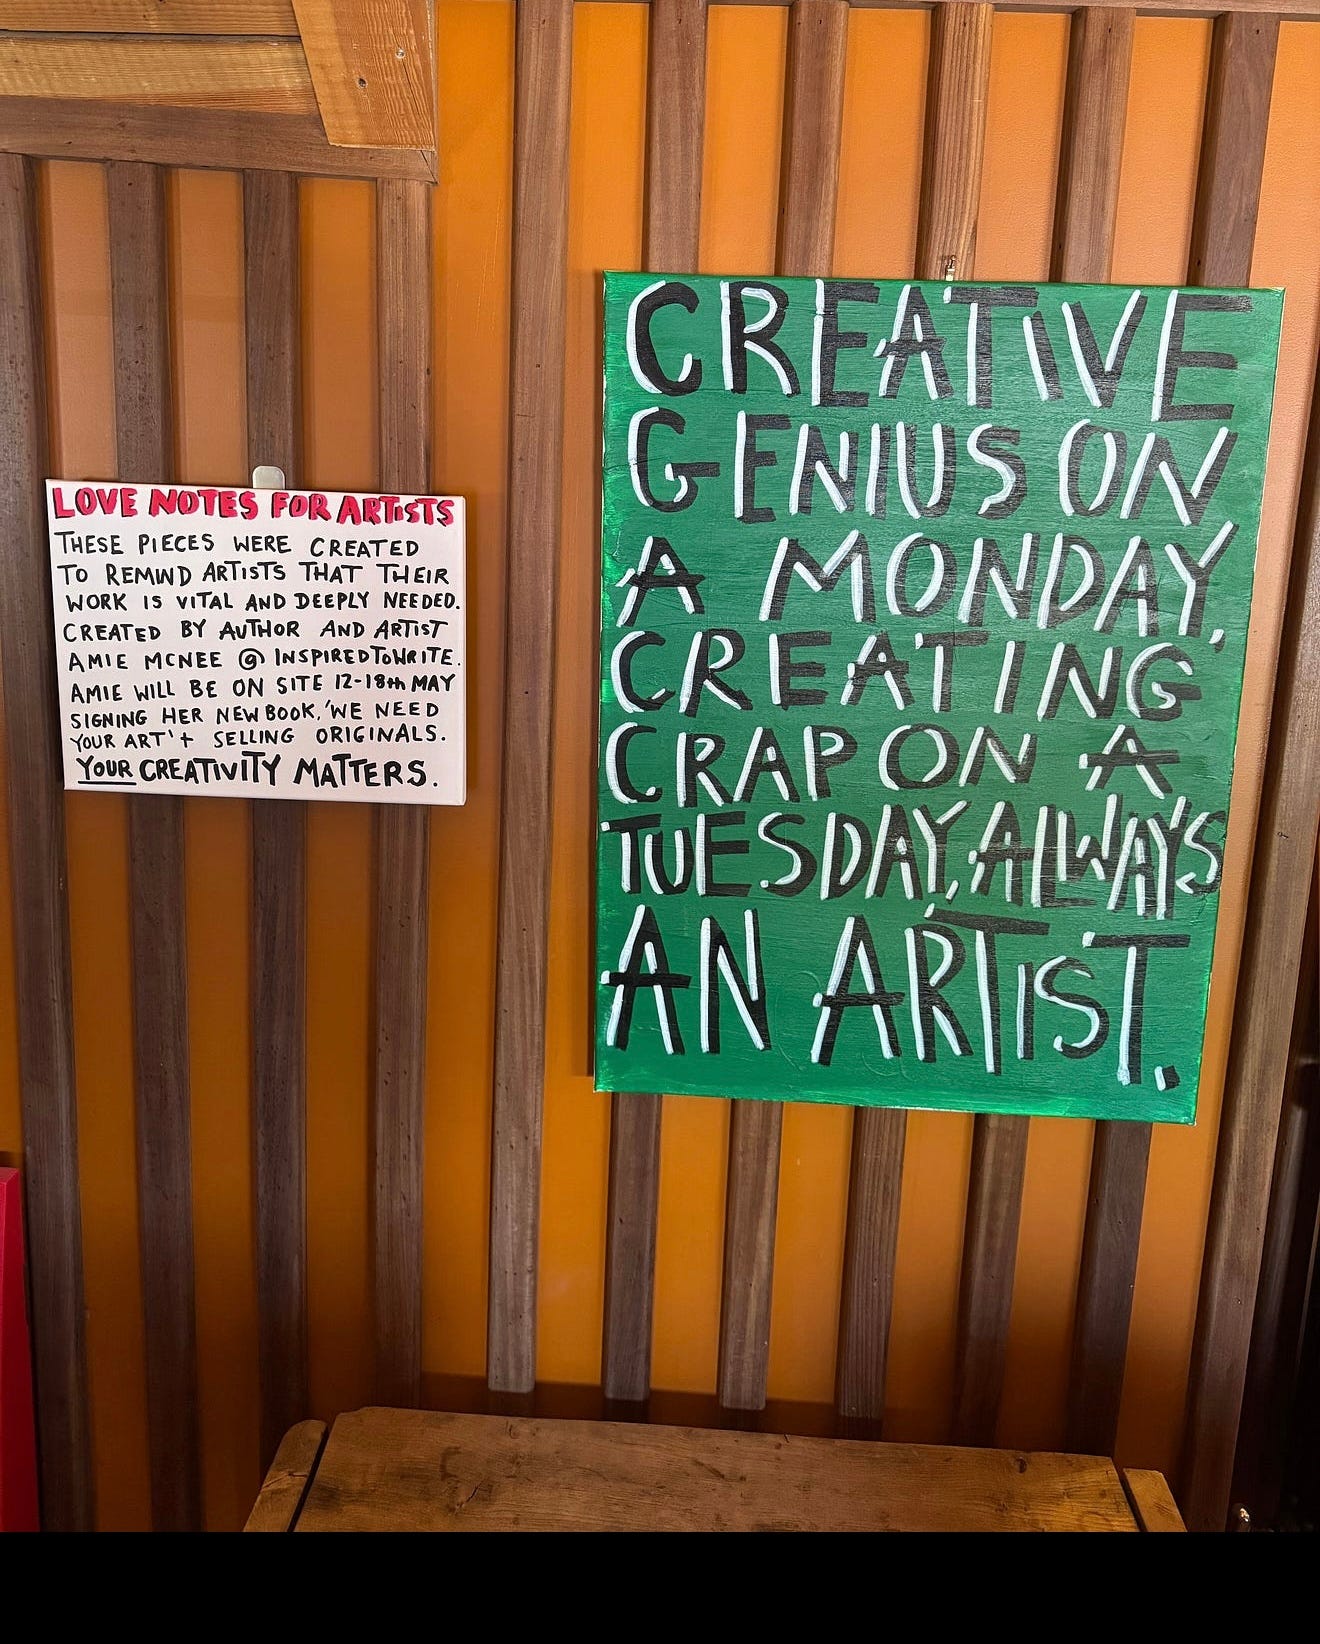 LOVE NOTES FOR ARTISTS
THESE PIECES WERE CREATED
TO REMIND ARTISTS THAT THEIR
WORK IS VITAL AND DEEPLY NEEDED.
CREATED BY AUTHOR AND ARTIST
AMIE MCNEE @ INSPIREDTOWRITE.
AMIE WILL BE ON SITE 12-18th MAY
SIGNING HER NEW BOOK, 'WE NEED
YOUR ART' + SELLING ORIGINALS.
YOUR CREATIVITY MATTERS.
CREATIVE
GENIUS ON
A MONDAY,
CREATING
CRAP ON A
TUESDAY, ALWAYS
AN ARTIST.